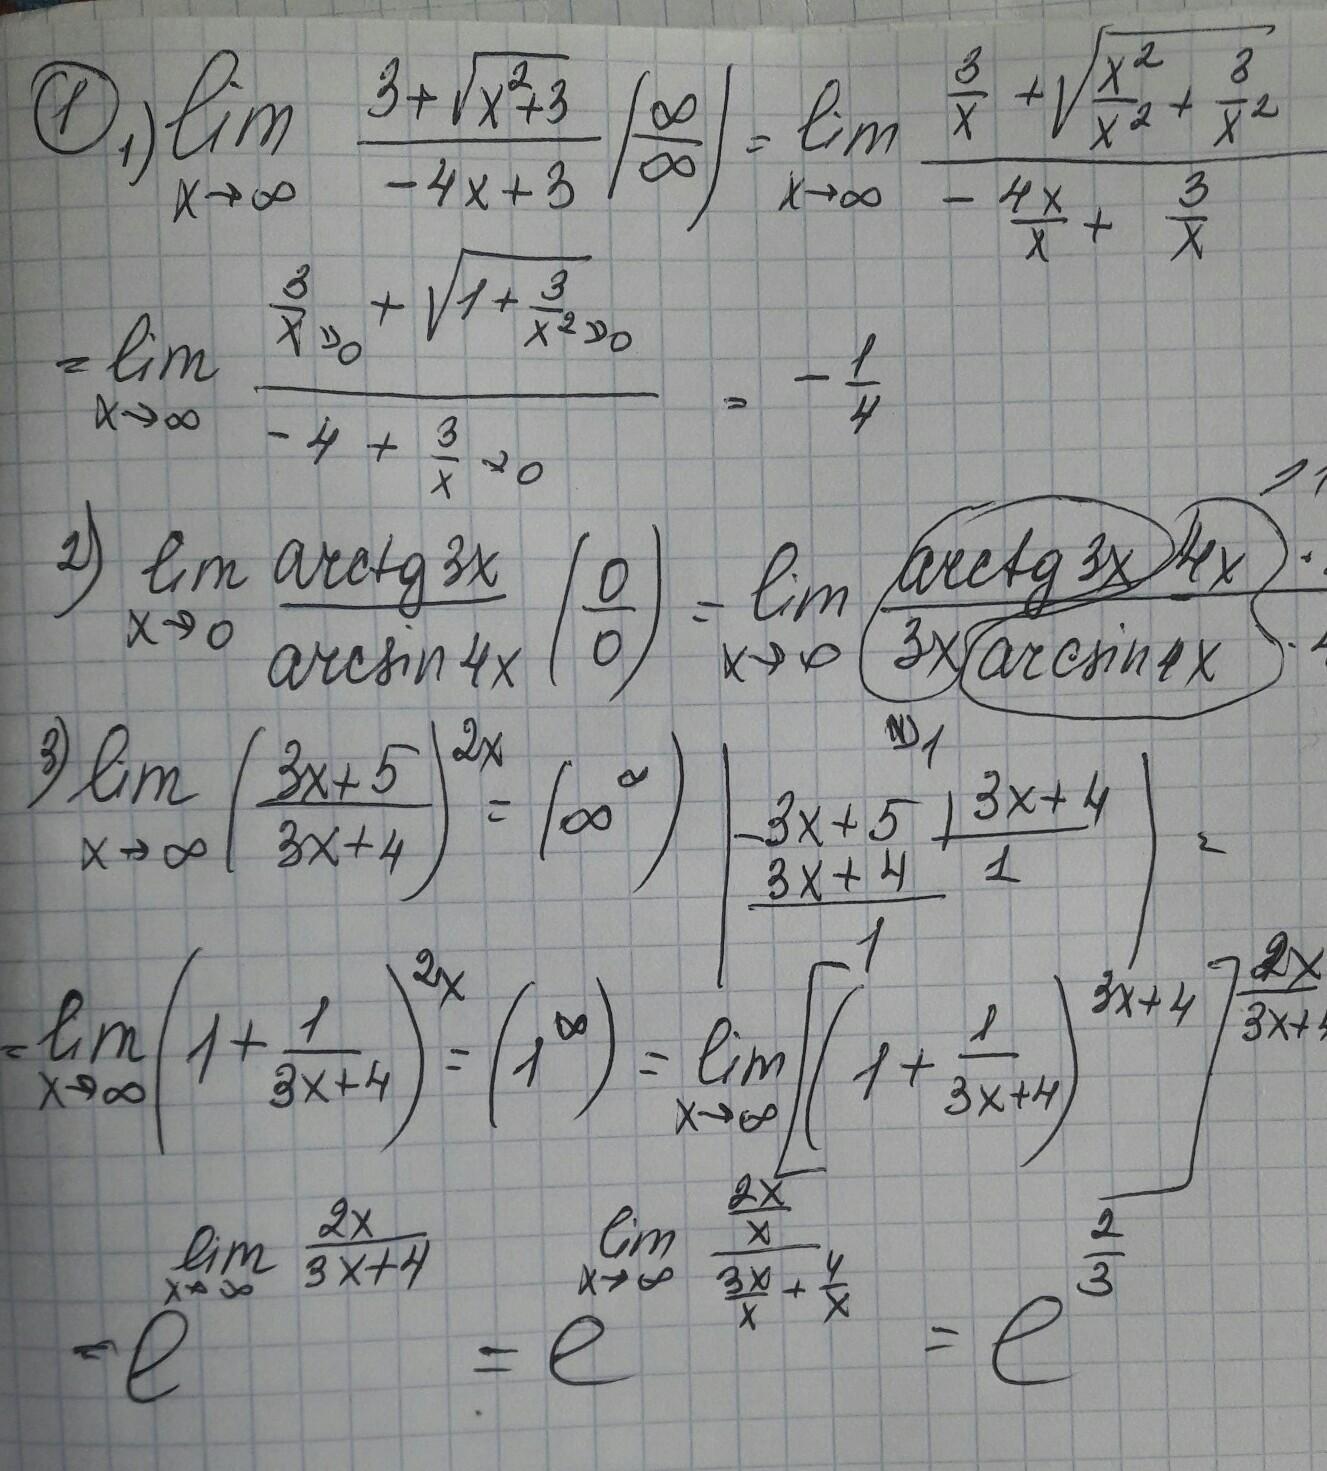 ① 1) lim x→∞ (3+√(x²+3))/(-4x+3) (∞/∞) = lim x→∞ (3/x + √(x²/x² + 3/x²))/(-4x/x + 3/x)
= lim x→∞ (3/x →0 + √(1 + 3/x² →0))/(-4 + 3/x →0) = -1/4
2) lim x→0 (arctg 3x)/(arcsin 4x) (0/0) = lim x→∞ (arctg 3x 4x ·)/(3x arcsin 4x ·
→1
3) lim x→∞ ((3x+5)/(3x+4))^(2x) = (∞^∞) | -3x+5 | 3x+4
3x+4 1 | =
1
= lim x→∞ (1 + 1/(3x+4))^(2x) = (1^∞) = lim x→∞ [(1 + 1/(3x+4))^(3x+4)]^(2x/(3x+4
= e^(lim x→∞ 2x/(3x+4)) = e^(lim x→∞ (2x/x)/(3x/x + 4/x)) = e^(2/3)